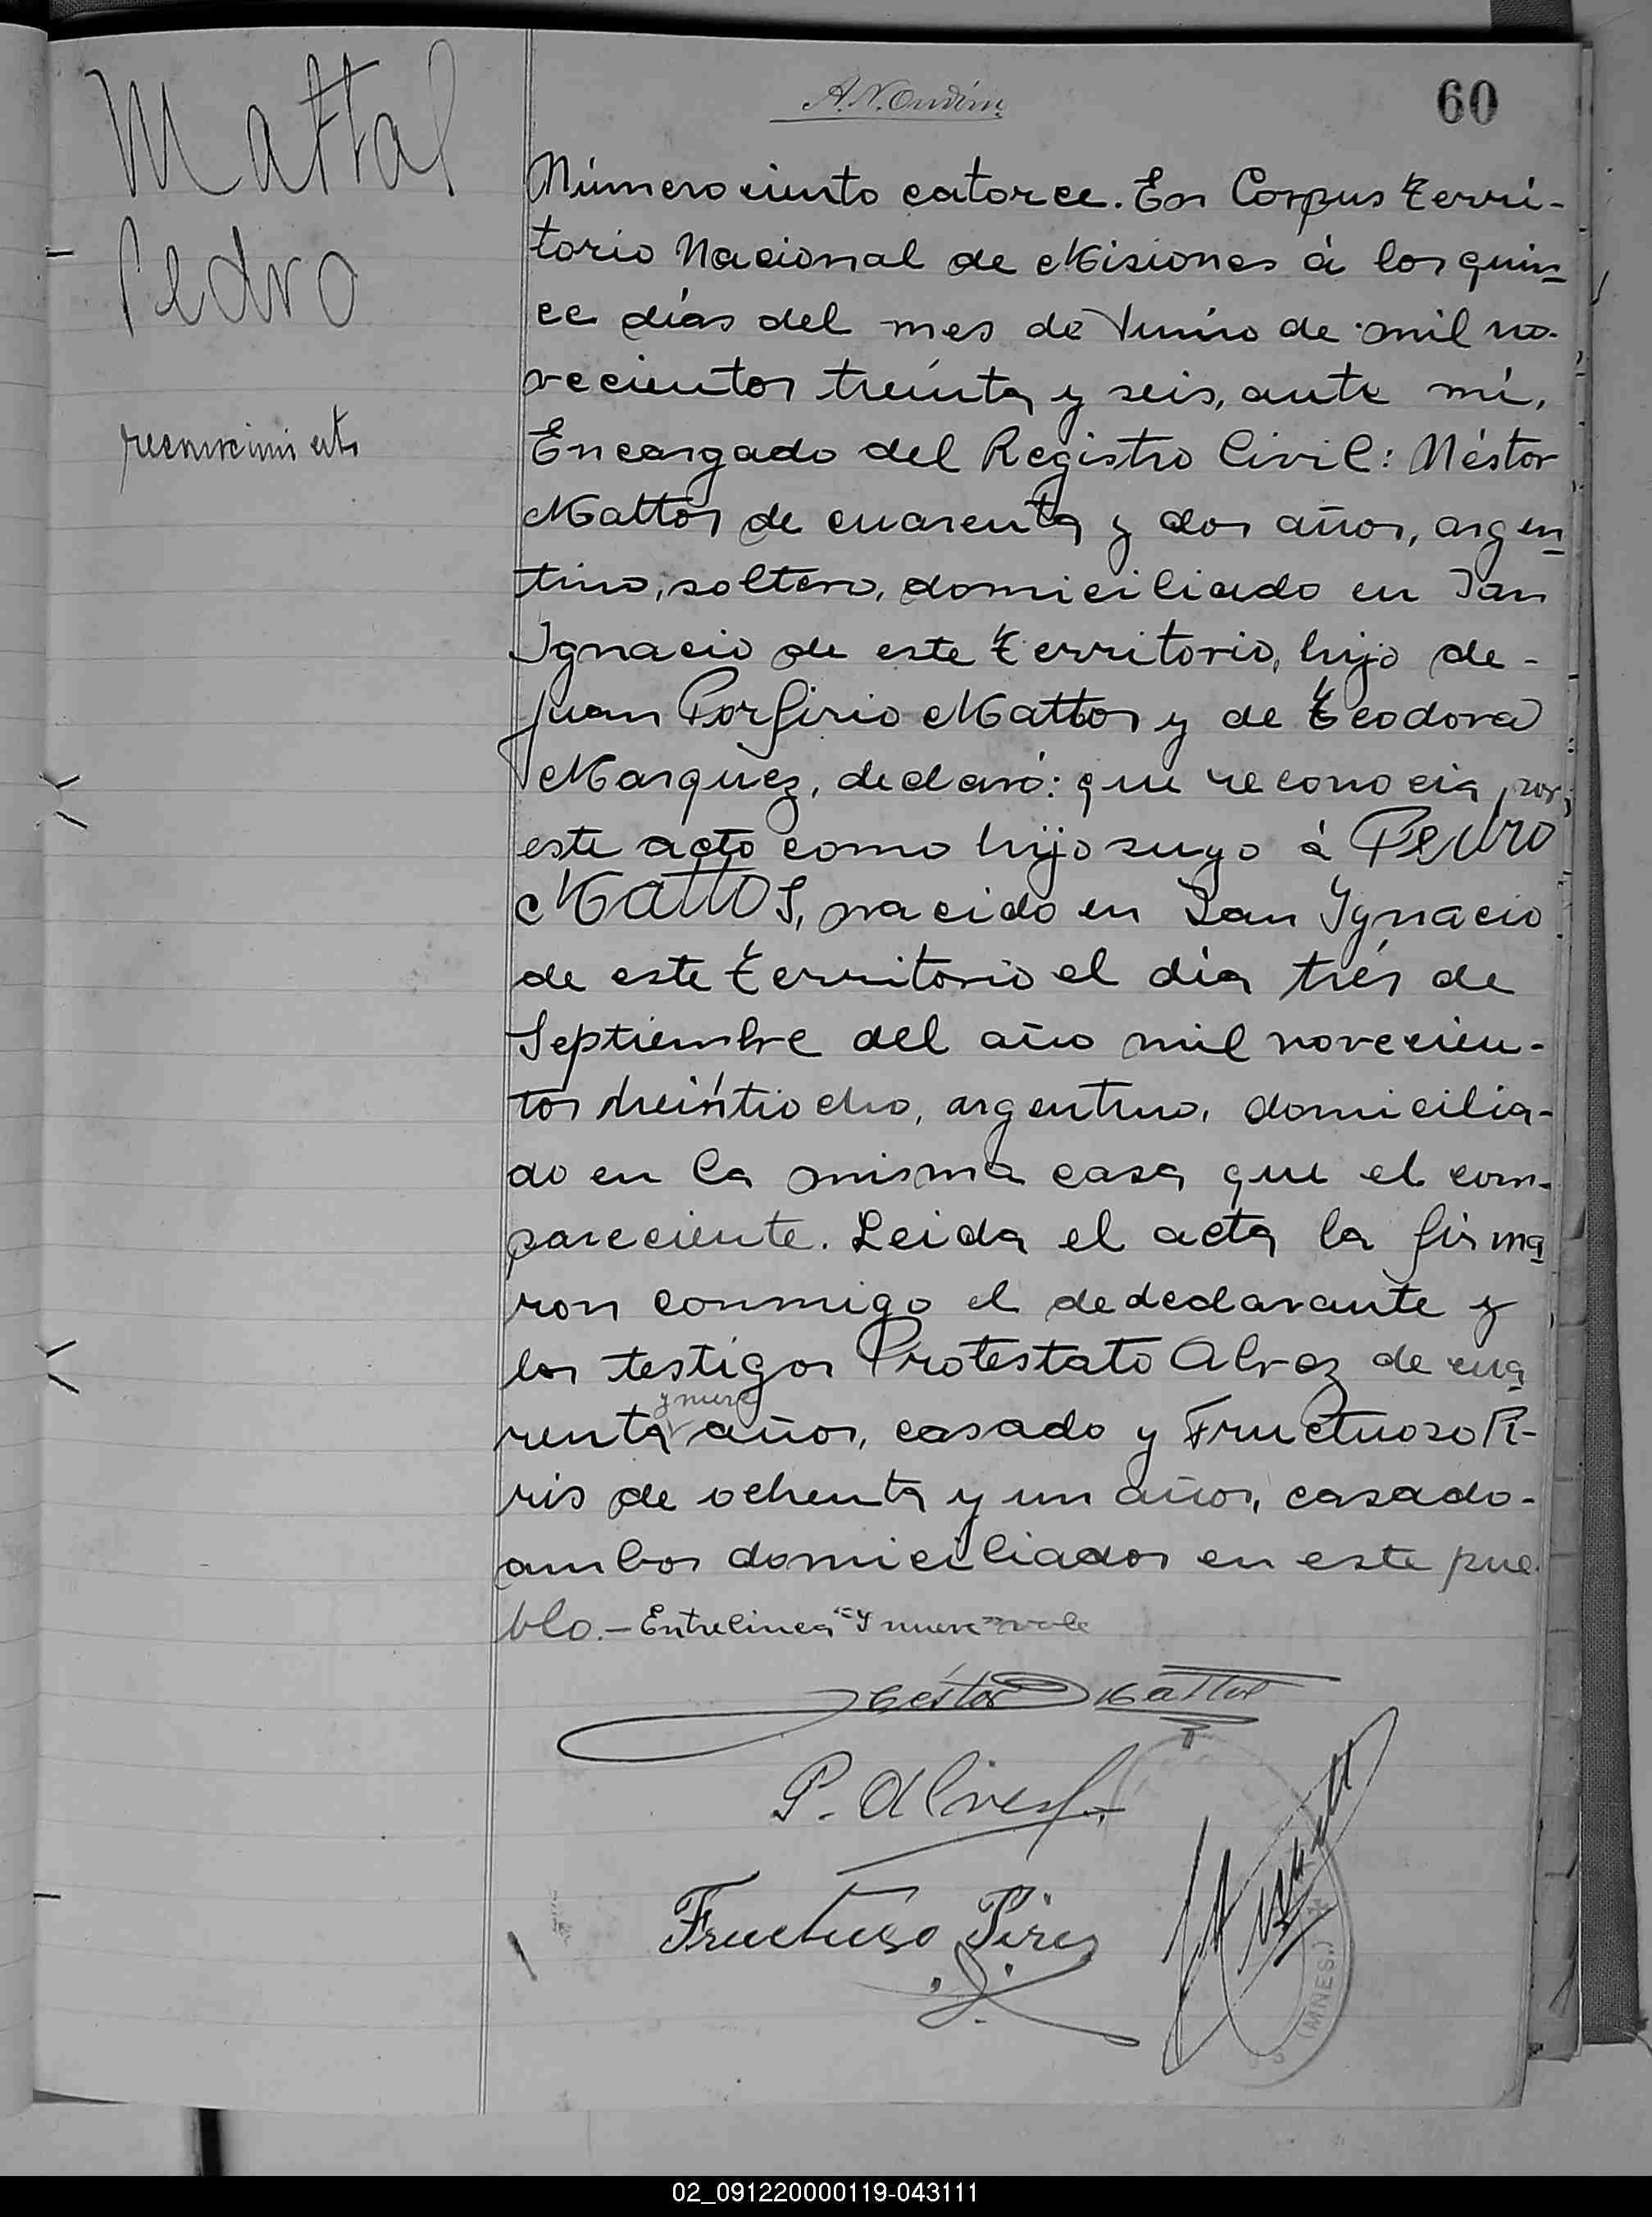 60
Mattos
Pedro
reconocimiento
Número ciento catorce. En Corpus terri-
torio Nacional de Misiones á los quin
ce días del mes de Junio de mil no-
vecientos treinta y seis, ante mí,
Encargado del Registro Civil: Néstor
Mattos de cuarenta y dos años, argen
tino, soltero, domiciliado en San
Ignacio de este territorio, hijo de-
Juan Porfirio Mattos y de Teodora
Marquez, declaró: que reconocia por
este acto como hijo suyo á Pedro
Mattos, nacido en San Ygnacio
de este territorio el día tres de
Septiembre del año mil novecien-
tos, argentino, domicilia-
do en la misma casa que el com-
pareciente. Leida el acta la firma
ron conmigo el dedeclarante y
los testigos Protestato Alvez de cua
y nueve
renta años, casado y Fructuoso Pi-
ris de ochenta y un años, casado-
ambos domiciliados en este pue
blo.- Entrelinea "y nueve" vale
Néstor Mattos
P. Alvez
Fructuoso Pires
(MNES.)
02_091220000119-043111